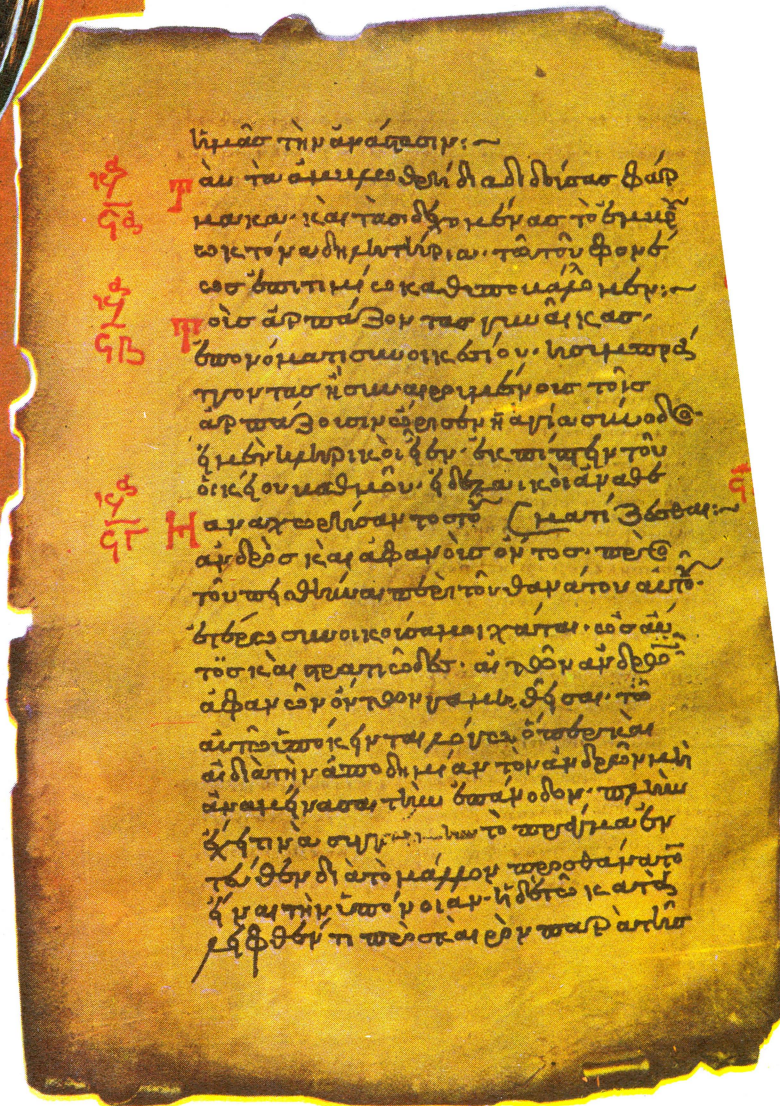 ἡμᾶς τὴν ἀνάστασιν:~
Τὰς τὰ ἀμβλωθρήδια διδούσας φάρ
μακα· καὶ τὰς δεχομένας τὸ ἐμβρυ
ωκτόνα δηλητήρια· τῶ τοῦ φονέ
ωσ ἐπιτιμίω καθυποβάλλομεν:~
κανὼν ϟα
Τοὺς ἁρπάζοντας γυναῖκας·
ἐπονόματι συνοικεσίου· ἢ συμπρά
ττοντας ἢ συναιρομένους τοῖς
ἁρπάζουσιν ὥρισεν ἡ ἁγία σύνοδος·
εἰ μὲν κληρικοὶ εἶεν· ἐκπίπτειν τοῦ
οἰκείου βαθμοῦ· εἰ δὲ λαϊκοὶ ἀναθε
ματίζεσθαι:~
κανὼν ϟβ
Ἡ ἀναχωρήσαντος τοῦ
ἀνδρὸς καὶ ἀφανοῦς ὄντος· πρὸ
τοῦ πεισθῆναι περὶ τοῦ θανάτου αὐτοῦ·
ἑτέρω συνοικοῦσα μοιχᾶται· ὡσαύ
τος καὶ στρατιώδες· αἱ τῶν ἀνδρῶν
ἀφανῶν ὄντων γαμηθεῖσαι· τῶ
αὐτῶ ὑπόκεινται λόγω· ὅπερ καὶ
αἱ διὰ τὴν ἀποδημίαν τῶν ἀνδρῶν μὴ
ἀναμείνασαι τὴν ἐπάνοδον· πλὴν
ἔχει τινὰ τὸ πρᾶγμα ἐν
ταῦθεν διὰ τὸ μᾶλλον προς θάνατον
εἶναι τὴν ὑπόνοιαν· ἡ δὲ τῶ κατα
λειφθέντι πρὸς καιρὸν παρὰ τῆς
κανὼν ϟγ